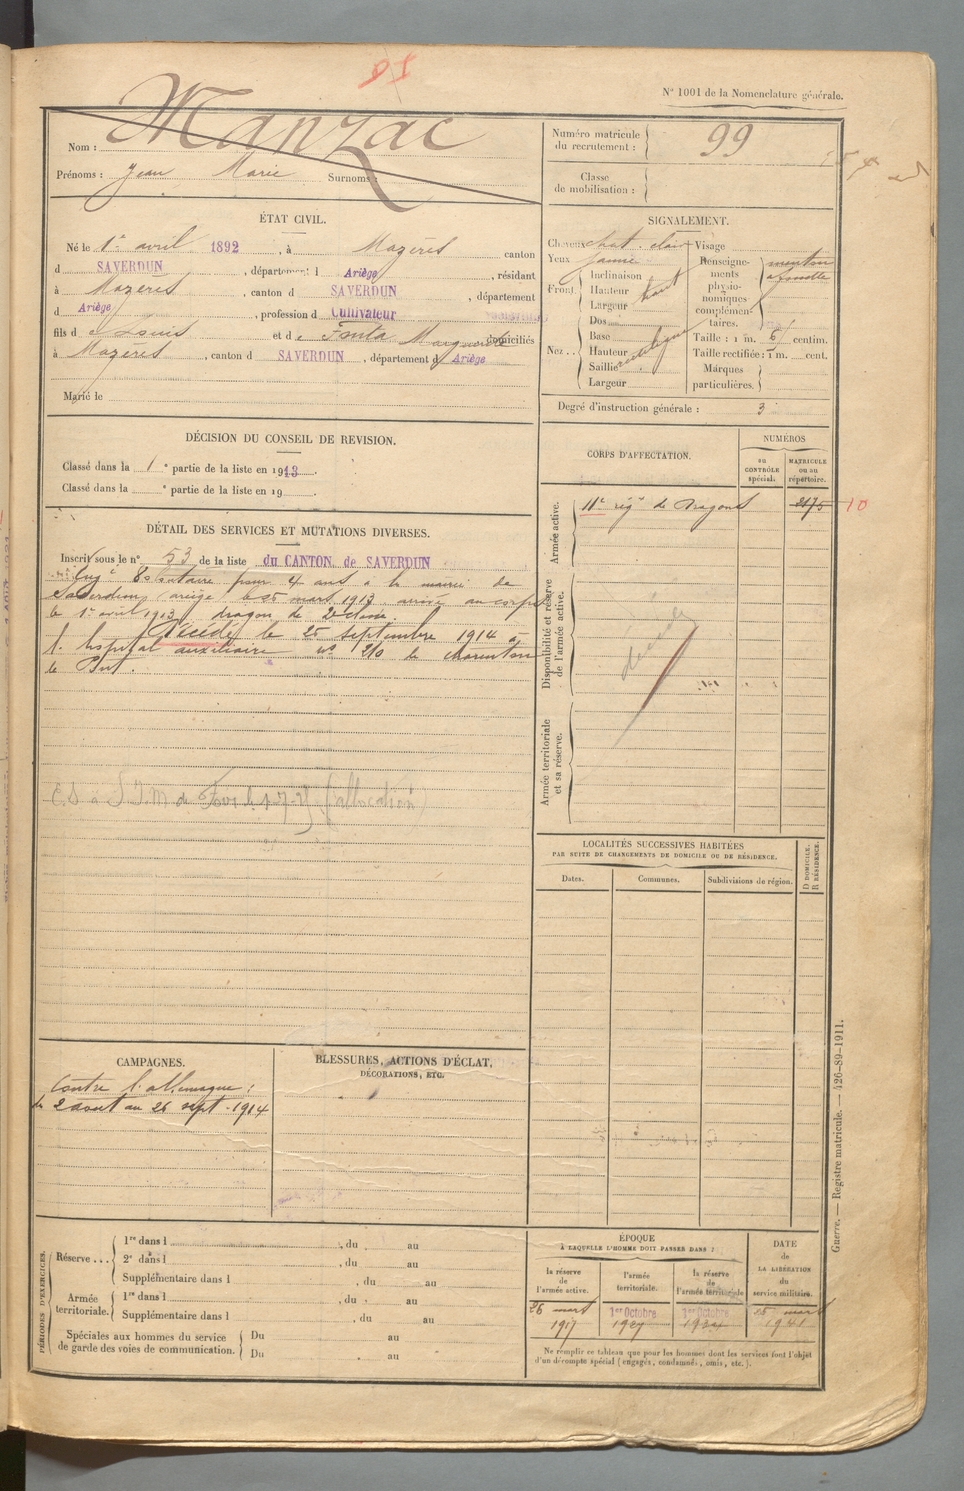 N° 1001 de la Nomenclature générale.
Nom : Manzac
Prénoms : Jean Marie Surnoms :
Numéro matricule du recrutement : 99
Classe de mobilisation :
ÉTAT CIVIL.
Né le 1er avril 1892, à Mazères canton
d SAVERDUN, département d Ariège, résidant
à Mazères, canton d SAVERDUN, département
d Ariège, profession d Cultivateur
fils de Louis et de Fonta Marguerite domiciliés
à Mazères, canton d SAVERDUN, département d Ariège
Marié le
SIGNALEMENT.
Cheveux chat. clair Visage
Yeux jaune
Front Inclinaison
Hauteur haut
Largeur
Nez Dos
Base rectiligne
Hauteur
Saillie
Largeur
Renseignements physionomiques complémentaires. menton à fossette
Taille : 1 m. 61 centim.
Taille rectifiée : 1 m. cent.
Marques particulières.
Degré d'instruction générale : 3
DÉCISION DU CONSEIL DE REVISION.
Classé dans la 1e partie de la liste en 1913.
Classé dans la e partie de la liste en 19
DÉTAIL DES SERVICES ET MUTATIONS DIVERSES.
Inscrit sous le n° 53 de la liste du CANTON de SAVERDUN
Engé Volontaire pour 4 ans à la mairie de
Saverdun ariège le 25 mars 1913 arrivé au corps
le 1er avril 1913 dragon de 2e classe.
Décédé le 25 septembre 1914 à
l'hôpital auxiliaire n° 210 de charenton
le Pont
CORPS D'AFFECTATION.
NUMÉROS
au CONTRÔLE spécial.
MATRICULE ou au répertoire.
Armée active.
11e régt de Dragons 2175 10
Disponibilité et réserve de l'armée active.
décédé
Armée territoriale et sa réserve.
LOCALITÉS SUCCESSIVES HABITÉES
PAR SUITE DE CHANGEMENTS DE DOMICILE OU DE RÉSIDENCE.
Dates. Communes. Subdivisions de région. D DOMICILE. R RÉSIDENCE.
CAMPAGNES.
Contre l'allemagne :
du 2 aout au 25 sept. 1914
BLESSURES, ACTIONS D'ÉCLAT,
DÉCORATIONS, ETC.
PÉRIODES D'EXERCICES.
Réserve... 1re dans l , du au
2e dans l , du au
Supplémentaire dans l , du au
Armée territoriale. 1re dans l , du au
Supplémentaire dans l , du au
Spéciales aux hommes du service de garde des voies de communication. Du au
Du au
ÉPOQUE
À LAQUELLE L'HOMME DOIT PASSER DANS :
la réserve de l'armée active.
l'armée territoriale.
la réserve de l'armée territoriale
DATE de LA LIBÉRATION du service militaire.
26 mars 1917
1er Octobre
1er Octobre
25 mars 1941
Ne remplir ce tableau que pour les hommes dont les services font l'objet
d'un décompte spécial (engagés, condamnés, omis, etc.).
Guerre. — Registre matricule. — 426-89-1911.